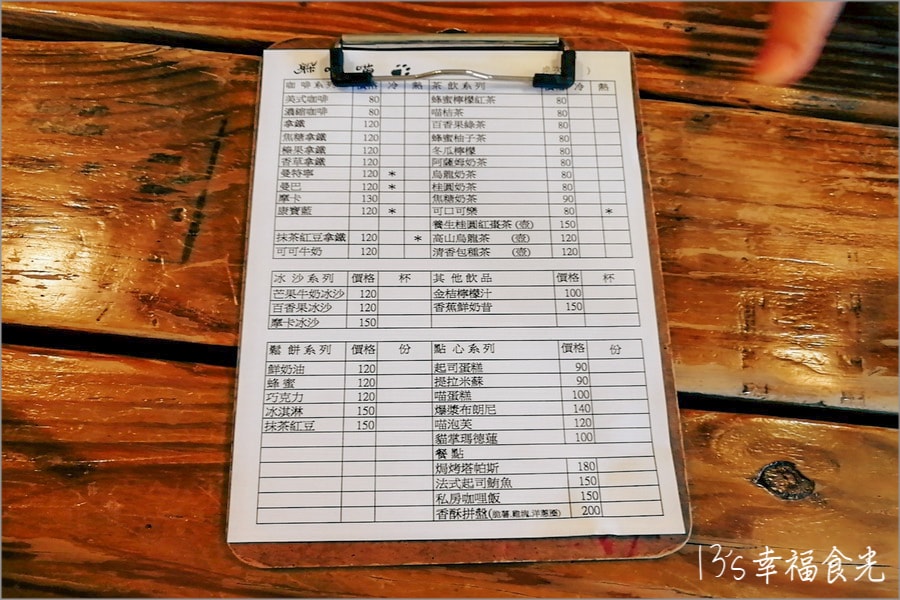 咖啡系列 價格 冷 熱 茶飲系列 價格 冷 熱
美式咖啡 80 蜂蜜檸檬紅茶 80
濃縮咖啡 80 喵桔茶 80
拿鐵 120 百香果綠茶 80
焦糖拿鐵 120 蜂蜜柚子茶 80
榛果拿鐵 120 冬瓜檸檬 80
香草拿鐵 120 阿薩姆奶茶 80
曼特寧 120 * 烏龍奶茶 80
曼巴 120 * 桂圓奶茶 80
摩卡 130 焦糖奶茶 90
康寶藍 120 * 可口可樂 80 *
養生桂圓紅棗茶(壺) 150
抹茶紅豆拿鐵 120 * 高山烏龍茶 (壺) 120
可可牛奶 120 清香包種茶 (壺) 120
冰沙系列 價格 杯 其他飲品 價格 杯
芒果牛奶冰沙 120 金桔檸檬汁 100
百香果冰沙 120 香蕉鮮奶昔 150
摩卡冰沙 150
鬆餅系列 價格 份 點心系列 價格 份
鮮奶油 120 起司蛋糕 90
蜂蜜 120 提拉米蘇 90
巧克力 120 喵蛋糕 100
冰淇淋 150 爆漿布朗尼 140
抹茶紅豆 150 喵泡芙 120
貓掌瑪德蓮 100
餐點
焗烤塔帕斯 180
法式起司鮪魚 150
私房咖哩飯 150
香酥拼盤(脆薯.雞塊.洋蔥圈) 200
13's幸福食光